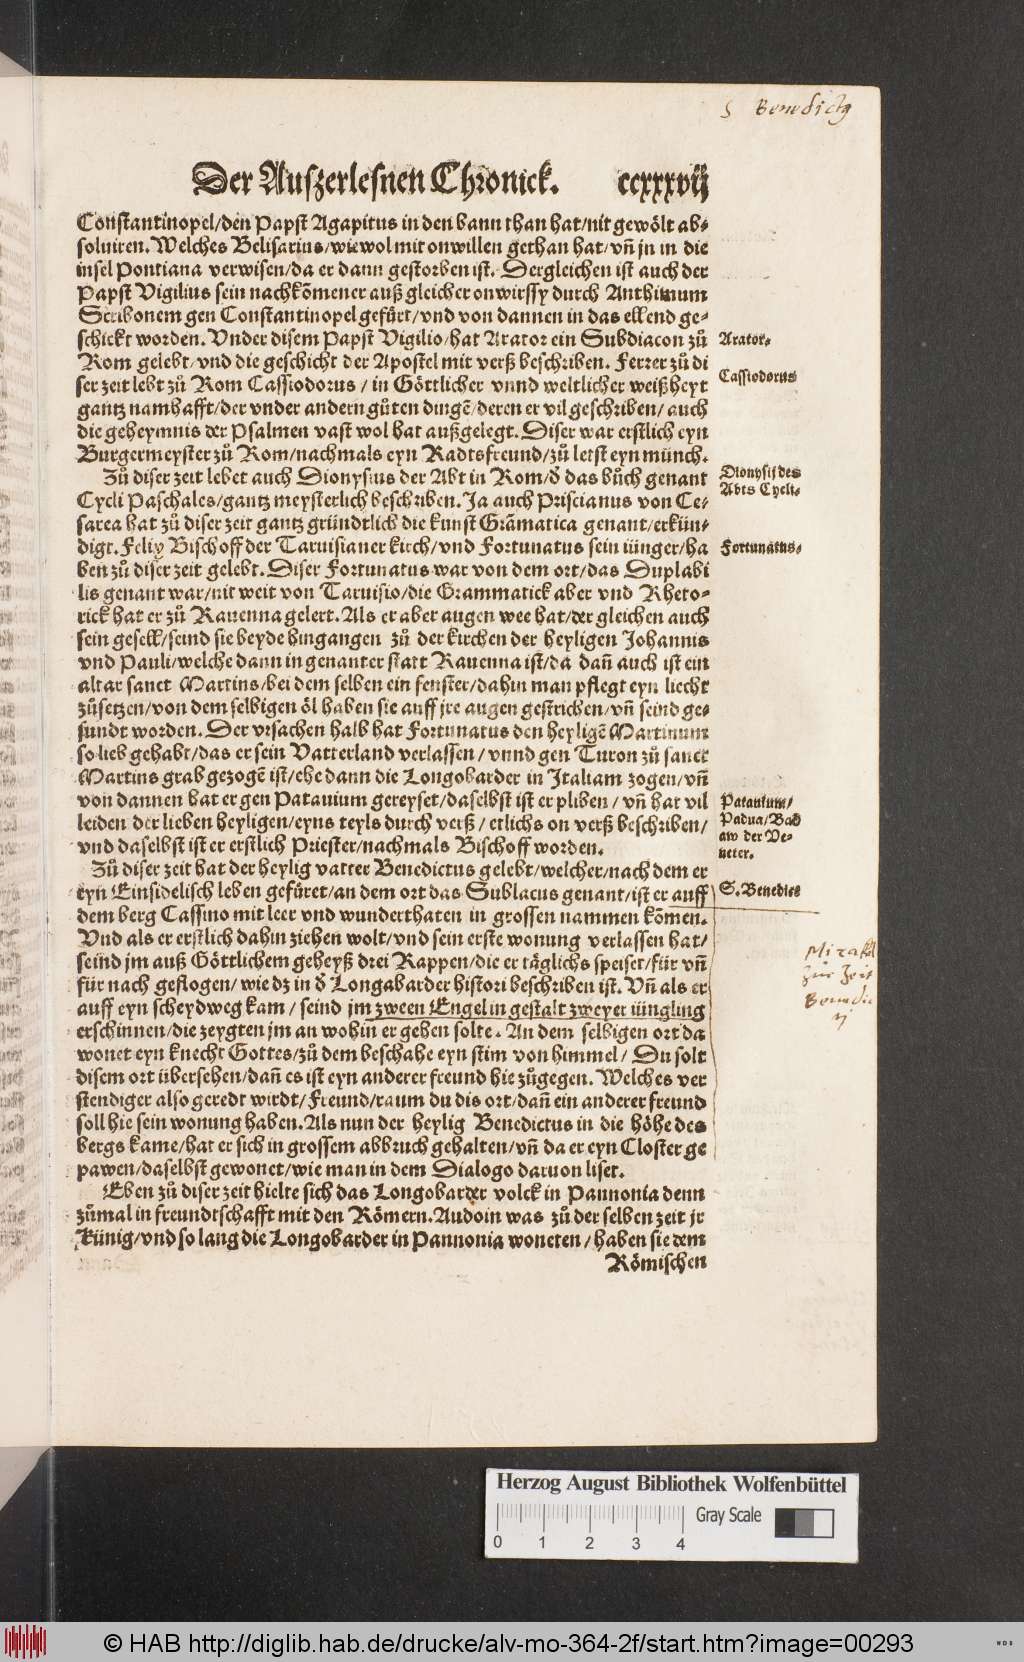 S Benedictꝰ
Der Auszerlesnen Chronick. ccxxxvij
Constantinopel/den Papst Agapitus in den bann than hat/nit gewölt ab-
soluiren. Welches Belisarius/wiewol mit onwillen gethan hat/vñ jn in die
insel Pontiana verwisen/da er dann gestorben ist. Dergleichen ist auch der
Papst Vigilius sein nachkõmener auß gleicher onwirssy durch Anthimum
Scribonem gen Constantinopel gefürt/vnd von dannen in das ellend ge-
schickt worden. Vnder disem Papst Vigilio/hat Arator ein Subdiacon zů
Arator.
Rom gelebt/vnd die geschicht der Apostel mit verß beschriben. Ferrer zů di
ser zeit lebt zů Rom Cassiodorus / in Göttlicher vnnd weltlicher weißheyt
Cassiodorus
gantz namhafft/der vnder andern gůten dingẽ/deren er vil geschriben/ auch
die geheymnis der Psalmen vast wol hat außgelegt. Diser war erstlich eyn
Burgermeyster zů Rom/nachmals eyn Radtsfreund/zů letst eyn münch.
Zů diser zeit lebet auch Dionysius der Abt in Rom/d̓ das bůch genant
Dionysij des
Abts Cycli.
Cycli Paschales/gantz meysterlich beschriben. Ja auch Priscianus von Ce-
sarea hat zů diser zeit gantz gründtlich die kunst Grãmatica genant/erkün-
digt. Felix Bischoff der Taruisianer kirch/vnd Fortunatus sein iünger/ha
Fortunatus.
ben zů diser zeit gelebt. Diser Fortunatus war von dem ort/das Duplabi
lis genant war/nit weit von Taruisio/die Grammatick aber vnd Rheto-
rick hat er zů Rauenna gelert. Als er aber augen wee hat/der gleichen auch
sein gesell/seind sie beyde hingangen zů der kirchen der heyligen Johannis
vnd Pauli/welche dann in genanter statt Rauenna ist/da dañ auch ist ein
altar sanct Martins/bei dem selben ein fenster/dahin man pflegt eyn liecht
zůsetzen/von dem selbigen öl haben sie auff jre augen gestrichen/vñ seind ge-
sundt worden. Der vrsachen halb hat Fortunatus den heyligẽ Martinum
so lieb gehabt/das er sein Vatterland verlassen / vnnd gen Turon zů sanct
Martins grab gezogẽ ist/ehe dann die Longobarder in Italiam zogen/vñ
von dannen hat er gen Patauium gereyset/daselbst ist er pliben / vñ hat vil
Patauium/
Padua/Bad
aw der Ve-
neter.
leiden der lieben heyligen/eyns teyls durch verß / etlichs on verß beschriben/
vnd daselbst ist er erstlich Priester/nachmals Bischoff worden.
Zů diser zeit hat der heylig vatter Benedictus gelebt/welcher/nach dem er
eyn Einsidelisch leben gefüret/an dem ort das Sublacus genant/ist er auff
S. Benedict
dem berg Cassino mit leer vnd wunderthaten in grossen nammen kõmen.
Vnd als er erstlich dahin ziehen wolt/vnd sein erste wonung verlassen hat/
seind jm auß Göttlichem geheyß drei Rappen/die er täglichs speiset/für vñ
für nach geflogen/ wie dz in d̓ Longabarder histori beschriben ist. Vñ als er
auff eyn scheydweg kam / seind jm zween Engel in gestalt zweyer iüngling
erschinnen/die zeygten jm an wohin er gehen solte. An dem selbigen ort da
wonet eyn knecht Gottes/zů dem beschahe eyn stim von himmel/ Du solt
disem ort übersehen/dañ es ist eyn anderer freund hie zůgegen. Welches ver
stendiger also geredt wirdt/ Freund/raum du dis ort/dañ ein anderer freund
soll hie sein wonung haben. Als nun der heylig Benedictus in die höhe des
bergs kame/hat er sich in grossem abbruch gehalten/vñ da er eyn Closter ge
pawen/daselbst gewonet/wie man in dem Dialogo daruon liset.
Mirakl
zur Zeit
Benedic
tj
Eben zů diser zeit hielte sich das Longobarder volck in Pannonia denn
zůmal in freundtschafft mit den Römern. Audoin was zů der selben zeit jr
Künig/vnd so lang die Longobarder in Pannonia woneten / haben sie dem
Römischen
Herzog August Bibliothek Wolfenbüttel
Gray Scale
0 1 2 3 4
© HAB http://diglib.hab.de/drucke/alv-mo-364-2f/start.htm?image=00293